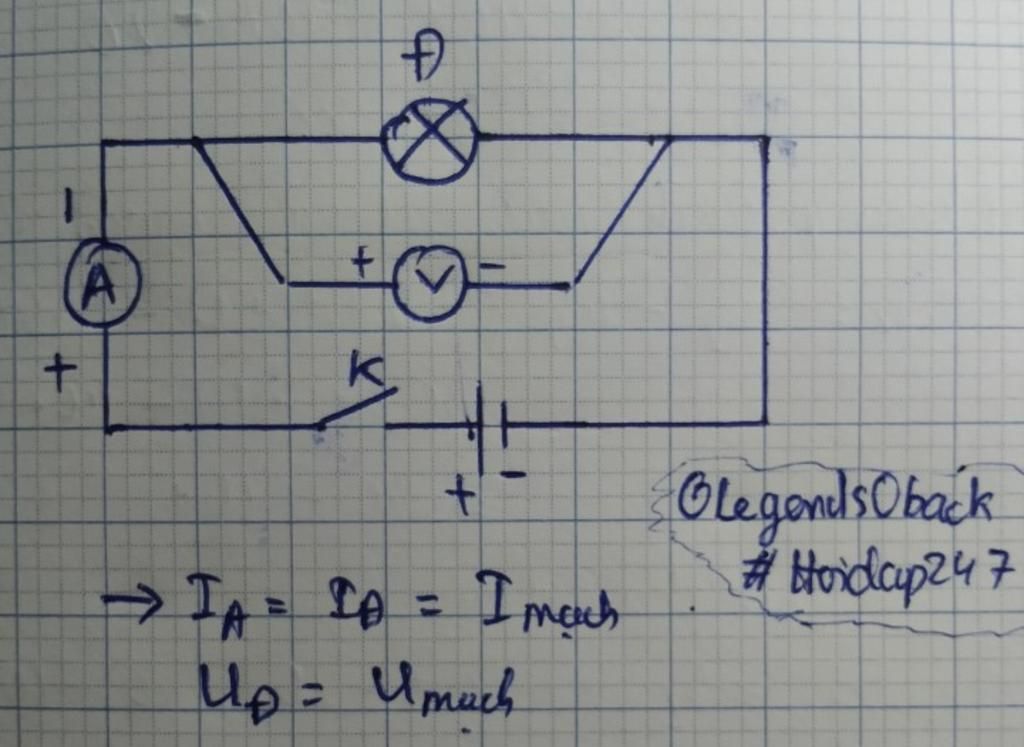 Đ
A
+
+ V -
K
+ -
@Legends0back
#Hoidap247
→ I_A = I_Đ = I_mạch
U_Đ = U_mạch